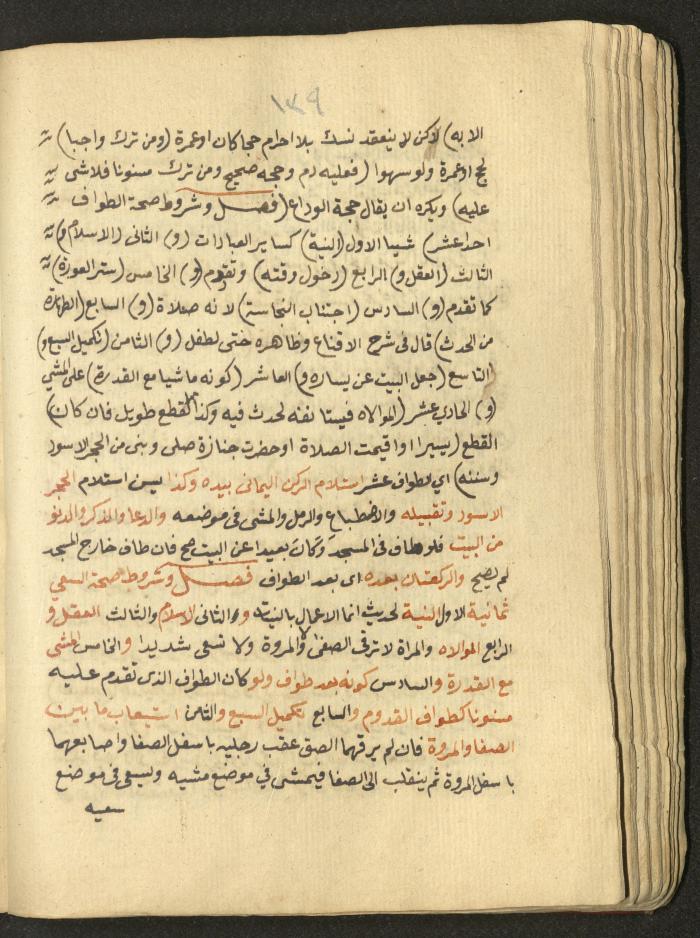 ١٣٩
الا به) لاكن لا ينعقد نسك بلا احرام حجا كان او عمرة (ومن ترك واجبا)
لحج او عمرة ولو سهوا (فعليه دم وحجه صحيح ومن ترك مسنونا فلا شى
عليه) ويكره ان يقال حجة الوداع (فصل وشروط صحة الطواف
احد عشر) شيا الاول (النية) كساير العبادات (و) الثانى (الاسلام و)
الثالث (العقل و) الرابع (دخول وقته) وتقدم (و) الخامس (ستر العورة)
كما تقدم (و) السادس (اجتناب النجاسة) لانه صلاة (و) السابع (الطهارة
من الحدث) قال فى شرح الاقناع وظاهره حتى لطفل (و) الثامن (تكميل السبع و)
التاسع (جعل البيت عن يساره و) العاشر (كونه ماشيا مع القدرة) على المشي
(و) الحادي عشر (الموالاه فيستانفه لحدث فيه وكذا لقطع طويل فان كان)
القطع (يسيرا او اقيمت الصلاة او حضرت جنازة صلى وبنى من الحجر الاسود
وسننه) اي الطواف عشر استلام الركن اليمانى بيده وكذا يسن استلام الحجر
الاسود وتقبيله والاضطباع والرمل والمشى فى موضعه والدعا والذكر والدنو
من البيت فلو طاف فى المسجد وكان بعيدا عن البيت صح فان طاف خارج المسجد
لم يصح والركعتان بعده اى بعد الطواف فصل وشروط صحة السعي
ثمانية الاول النية لحديث انما الاعمال بالنيت و الثانى الاسلام والثالث العقل و
الرابع الموالاه والمراة لا ترقى الصفا والمروة ولا تسعى شديدا والخامس المشى
مع القدرة والسادس كونه بعد طواف ولو كان الطواف الذى تقدم عليه
مسنونا كطواف القدوم والسابع تكميل السبع والثامن استيعاب ما بين
الصفا والمروة فان لم يرقهما الصق عقب رجليه باسفل الصفا واصابعهما
باسفل المروة ثم ينقلب الى الصفا فيمشى في موضع مشيه ويسعى فى موضع
سعيه